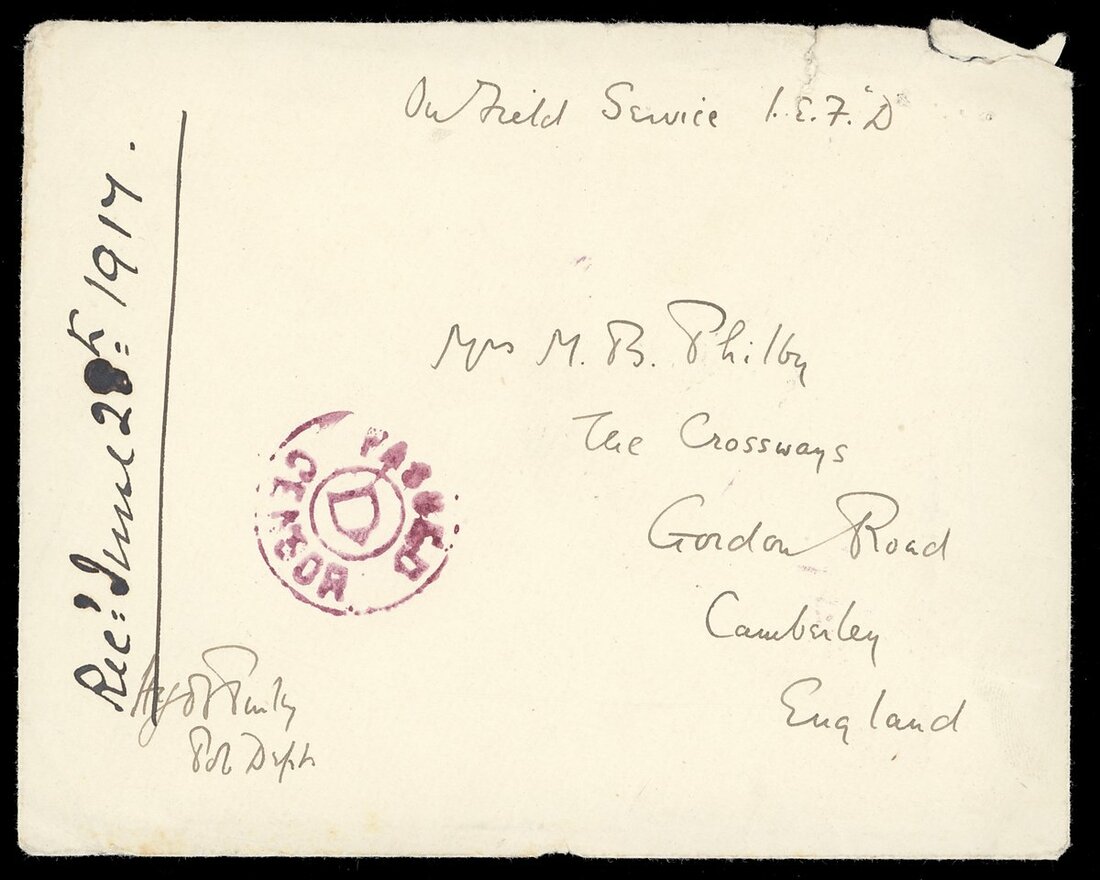 On Field Service I.E.F. "D"
Mrs M. B. Philby
The Crossways
Gordon Road
Camberley
England
PASSED CENSOR
D
Rec:d June 28th: 1917.
Pol Dept